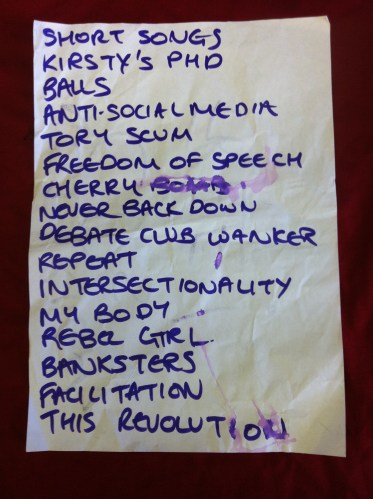 SHORT SONGS
KIRSTY'S PHD
BALLS
ANTI-SOCIAL MEDIA
TORY SCUM
FREEDOM OF SPEECH
CHERRY BOMB
NEVER BACK DOWN
DEBATE CLUB WANKER
REPEAT
INTERSECTIONALITY
MY BODY
REBEL GIRL
BANKSTERS
FACILITATION
THIS REVOLUTION